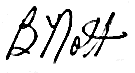 B Nott